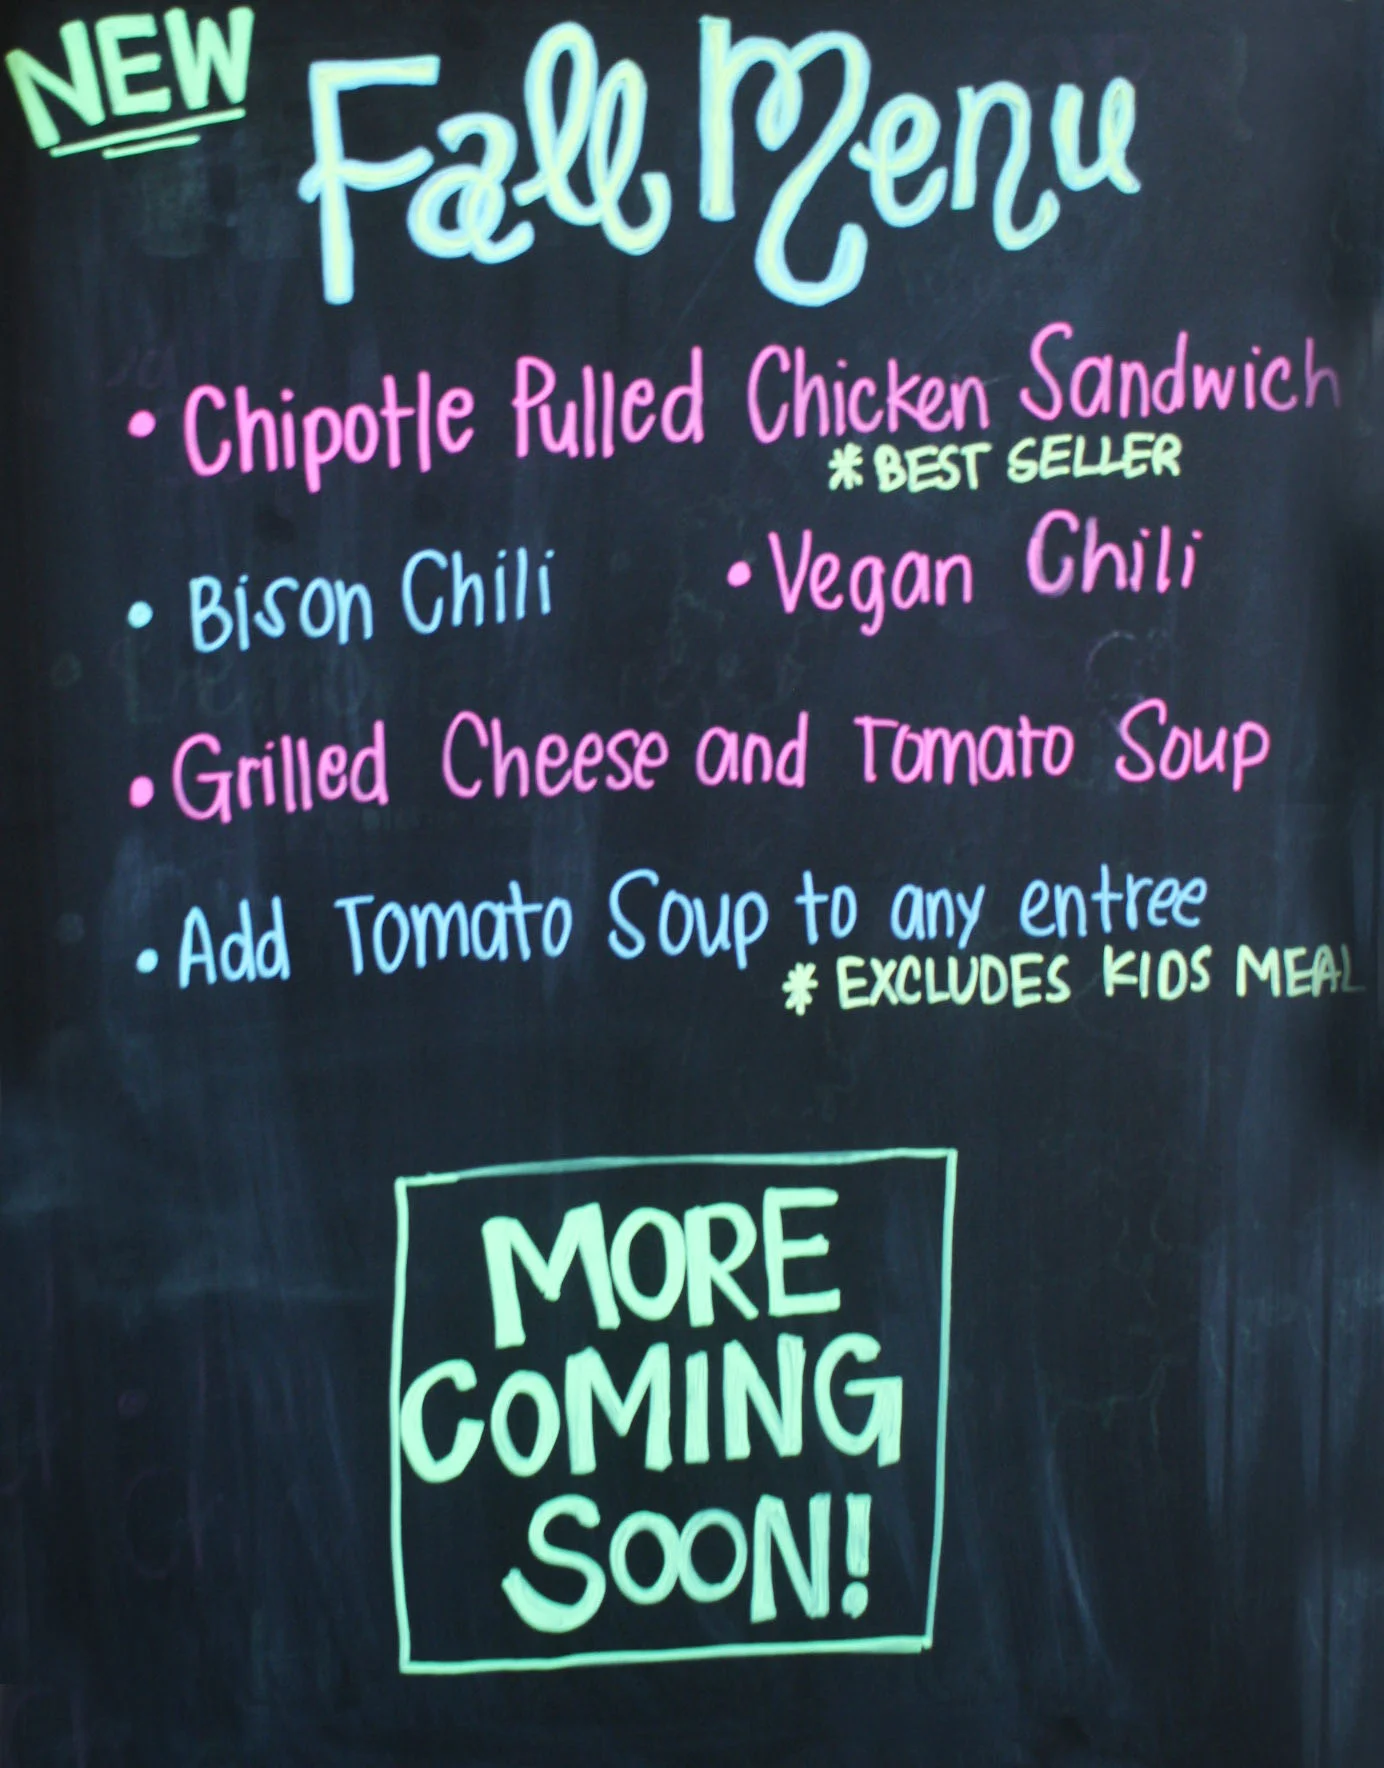 NEW
Fall Menu
• Chipotle Pulled Chicken Sandwich
* BEST SELLER
• Bison Chili
• Vegan Chili
• Grilled Cheese and Tomato Soup
• Add Tomato Soup to any entree
* EXCLUDES KIDS MEAL
MORE
COMING
SOON!